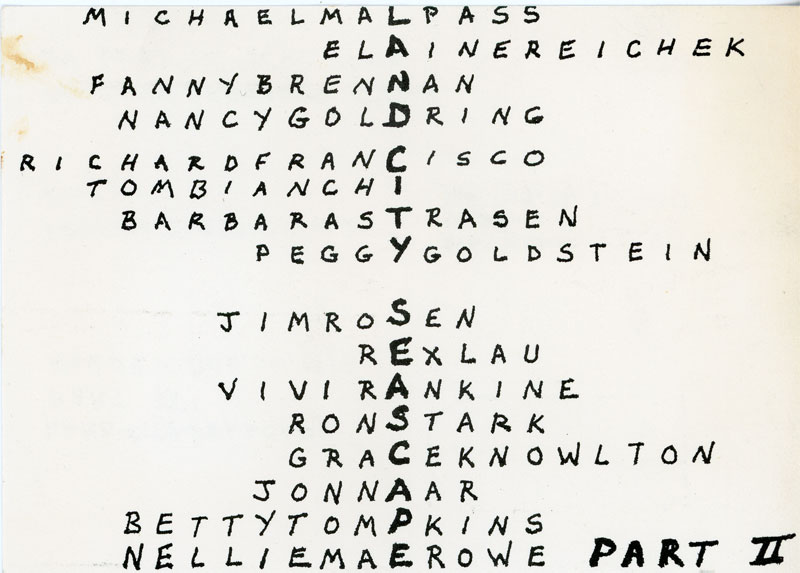 MICHAELMALPASS
ELAINEREICHEK
FANNYBRENNAN
NANCYGOLDRING
RICHARDFRANCISCO
TOMBIANCHI
BARBARASTRASEN
PEGGYGOLDSTEIN
JIMROSEN
REXLAU
VIVIRANKINE
RONSTARK
GRACEKNOWLTON
JONNAAR
BETTYTOMPKINS
NELLIEMAEROWE PART II